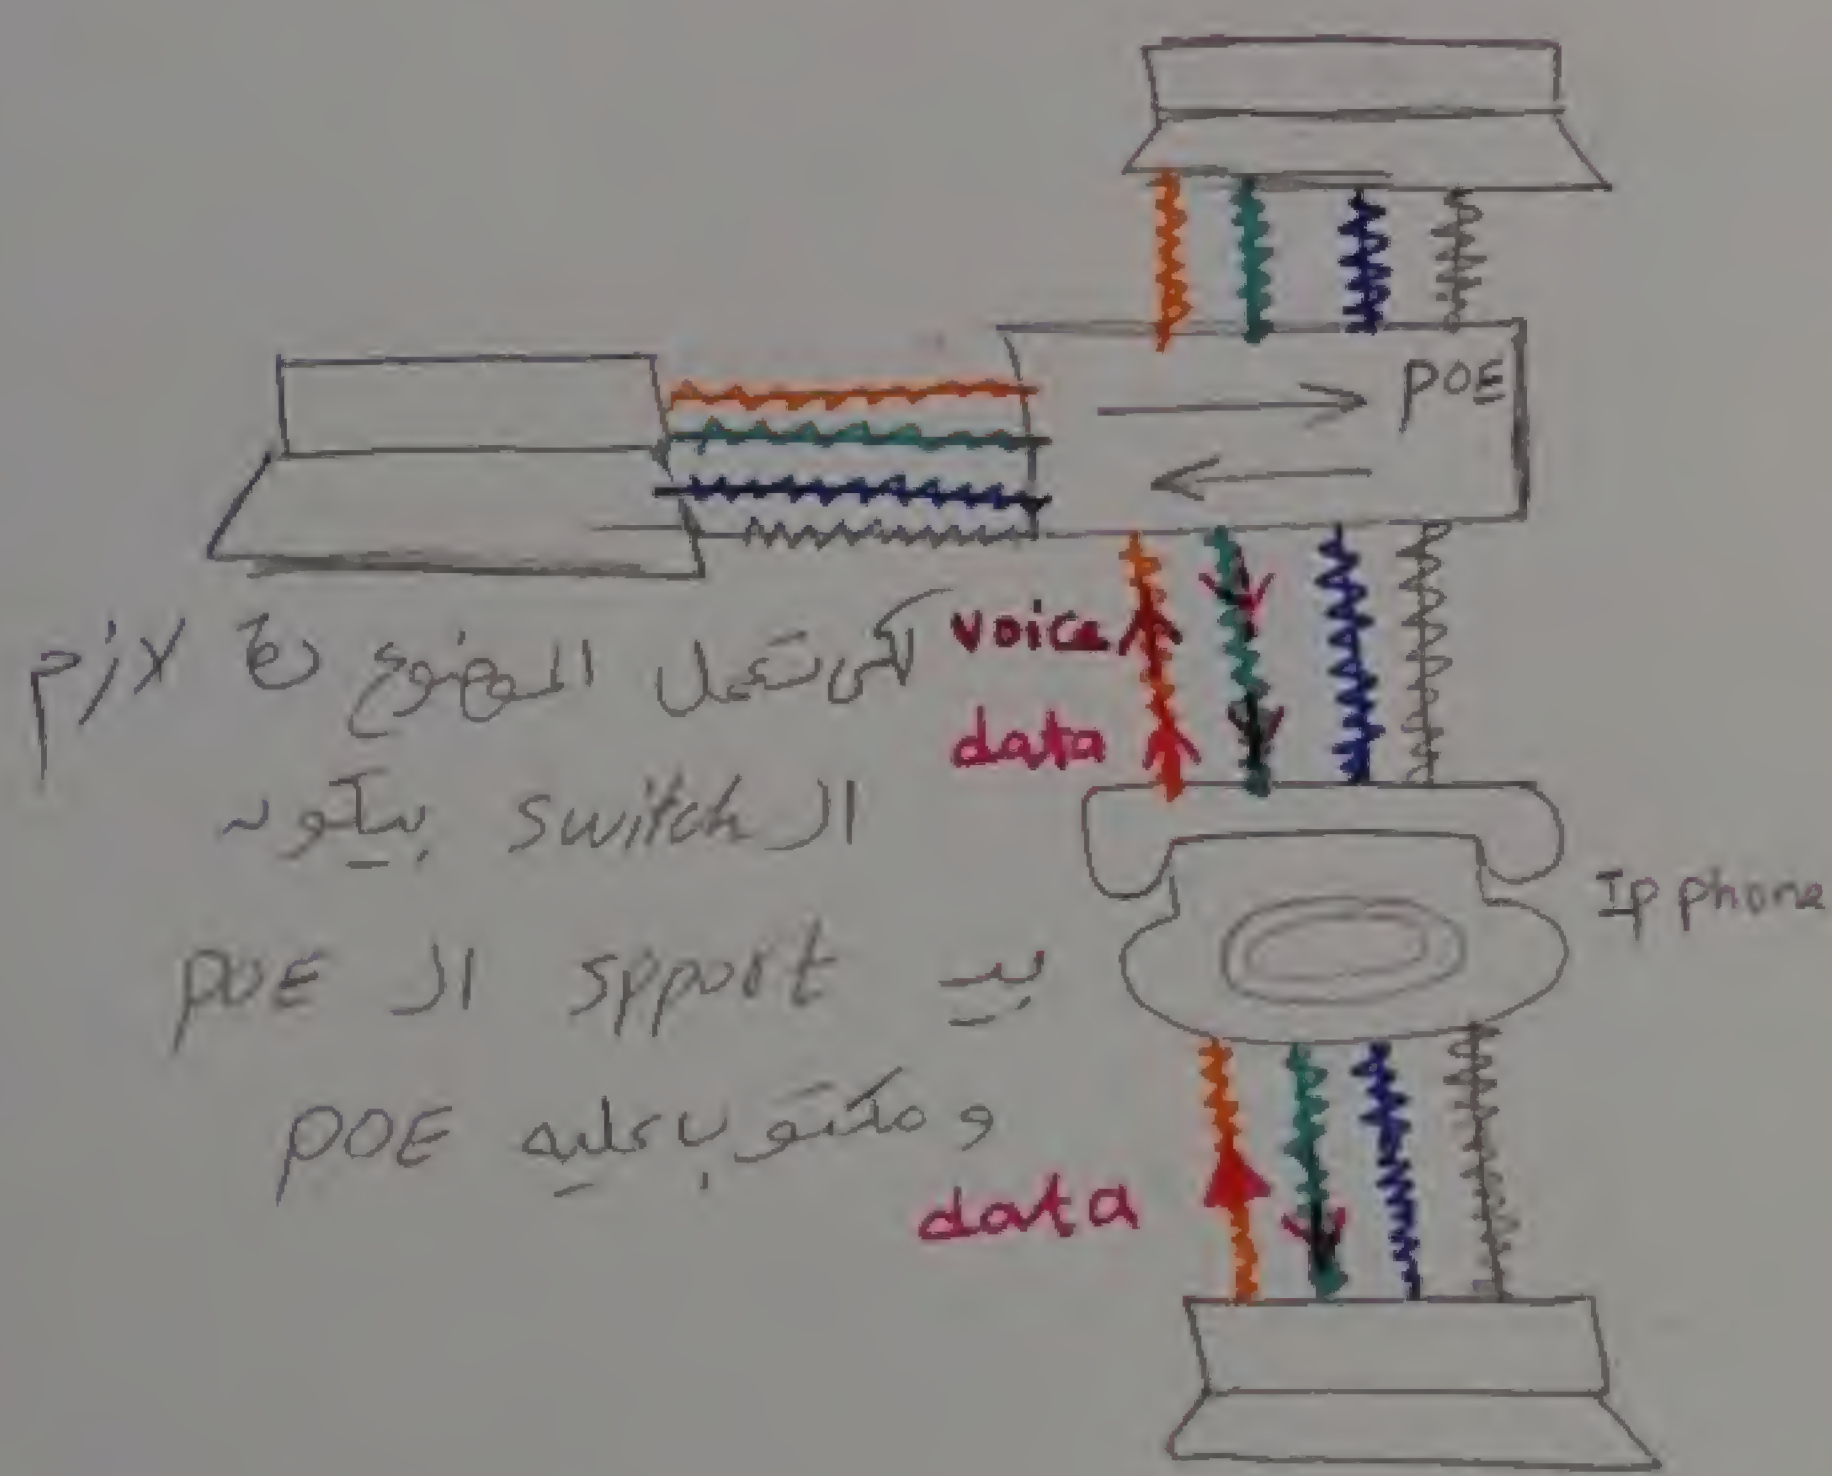 POE
voice
data
لكى تعمل الموضوع ده لازم
ال switch بيكون
بيـ spport ال POE
و مكتوب عليه POE
Ip phone
data